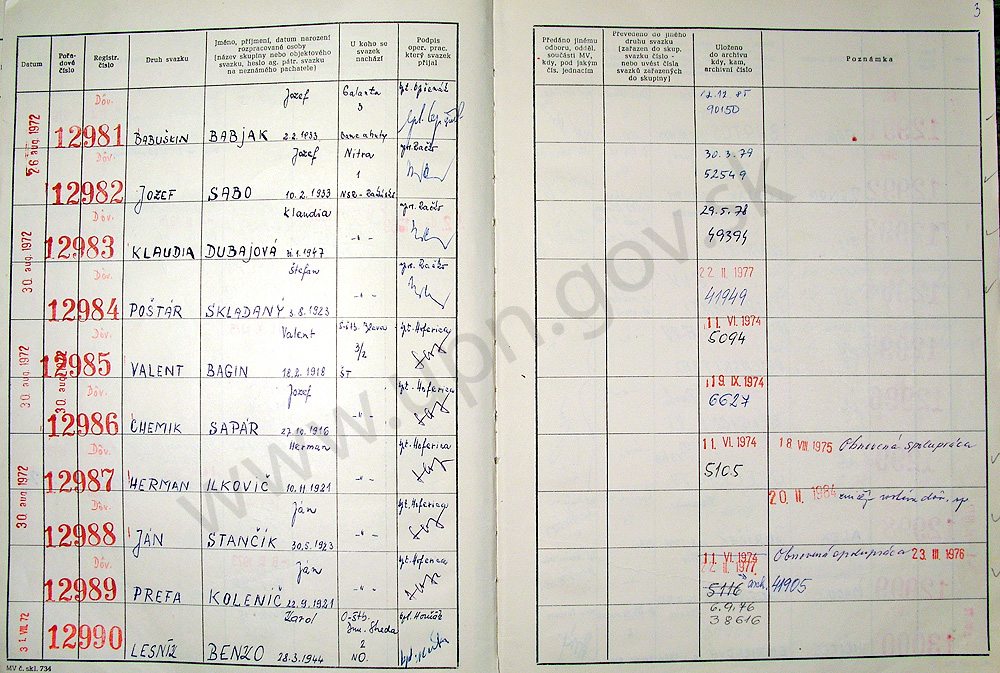 3
Datum
Pořa-
dové
číslo
Registr.
číslo
Druh svazku
Jméno, příjmení, datum narození
rozpracované osoby
(název skupiny nebo objektového
svazku, heslo ag. pátr. svazku
na neznámého pachatele)
U koho se
svazek
nachází
Podpis
oper. prac.
který svazek
přijal
Předáno jinému
odboru, odděl.
součásti MV,
kdy, pod jakým
čís. jednacím
Převedeno do jiného
druhu svazku
(zařazen do skup.
svazku číslo -
nebo uvést čísla
svazků zařazených
do skupiny)
Uloženo
do archivu
kdy, kam,
archivní číslo
Poznámka
26 aug. 1972
Dôv.
12981
BABUŠKIN
Jozef
BABJAK 2.2.1933
Galanta
3
12.12.85
90150
Dôv.
12982
JOZEF
Jozef
SABO 10.2.1933
Nitra
1
30.3.79
52549
30. aug. 1972
Dôv.
12983
KLAUDIA
Klaudia
DUBAJOVÁ
-"-
29.5.78
49394
Dôv.
12984
POŠTÁR
Štefan
SKLADANÝ 3.8.1923
-"-
22 II. 1977
41949
30. aug. 1972
30. aug. 1972
Dôv.
12985
VALENT
Valent
BAGIN 18.2.1918
3/2
ŠT
11. VI. 1974
5094
Dôv.
12986
CHEMIK
Jozef
SAPÁR 27.10.1916
-"-
19. IX. 1974
6627
30. aug. 1972
Dôv.
12987
HERMAN
Herman
ILKOVIČ 10.11.1921
-"-
11. VI. 1974
5105
18 VIII. 1975 Obnovená spolupráca
Dôv.
12988
JÁN
Ján
STANČÍK 30.5.1923
-"-
20. II. 1984
Dôv.
12989
PREFA
Ján
KOLENIČ 22.9.1921
-"-
11. VI. 1974
22. II. 1977
5116 arch. 41905
Obnovená spolupráca 23. III. 1976
31. VII. 72
12990
LESNÍK
Karol
BENKO 28.3.1944
2
NO.
6.9.76
38616
MV č. skl. 734
www.upn.gov.sk